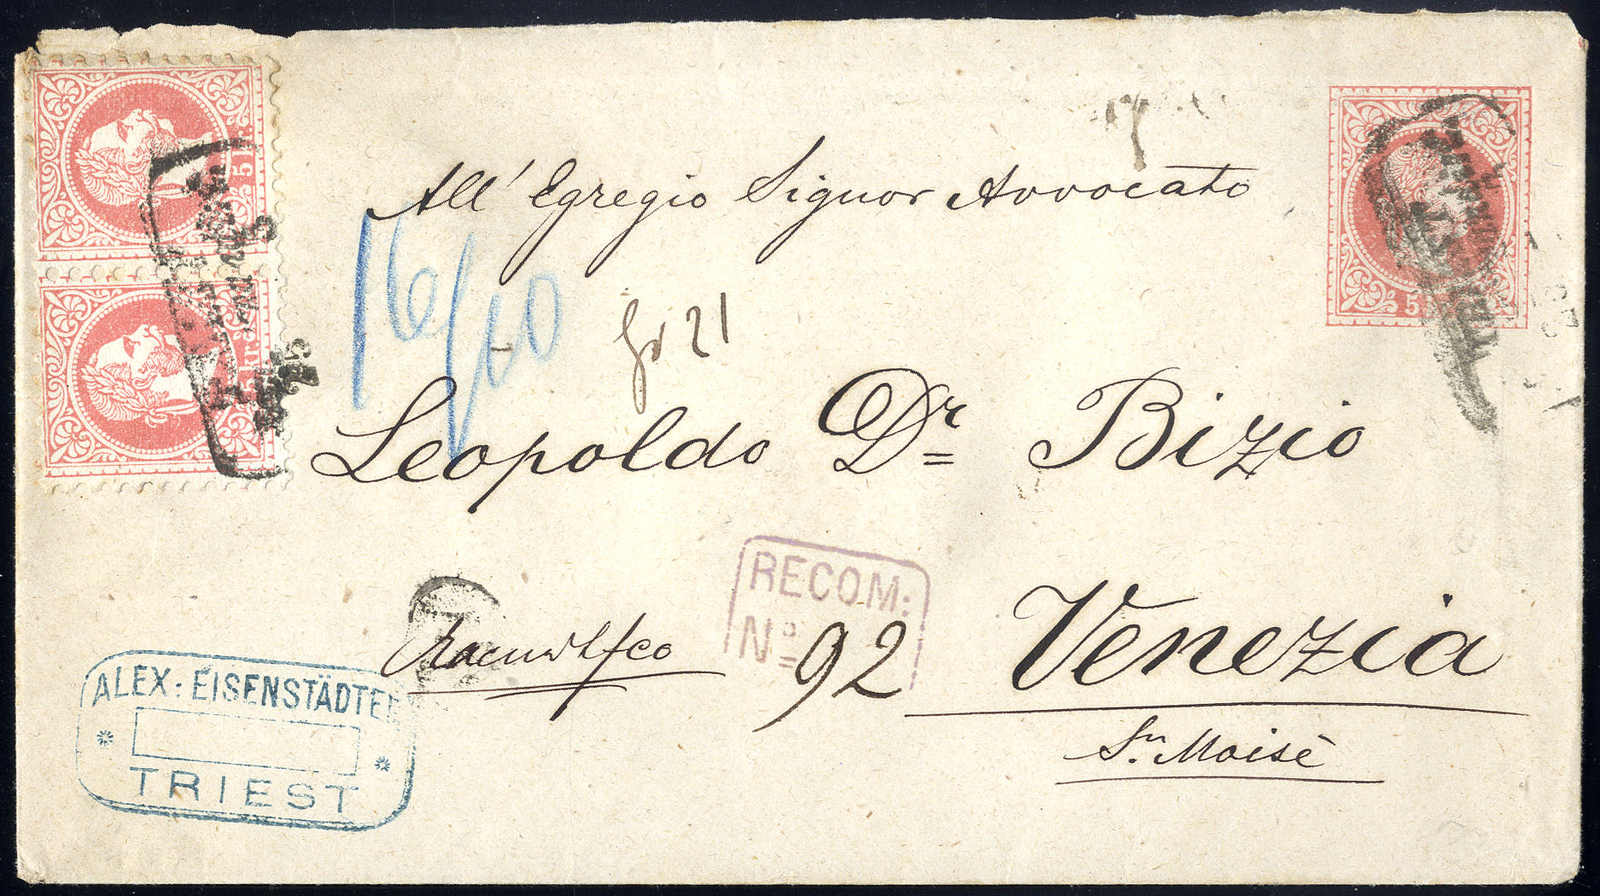 All' Egregio Signor Avvocato
5 kr.
5 kr.
5
16/60
gr 21
Leopoldo Dr Bizio
RECOM:
No 92
Venezia
Sn Moisè
ALEX: EISENSTÄDTER
TRIEST